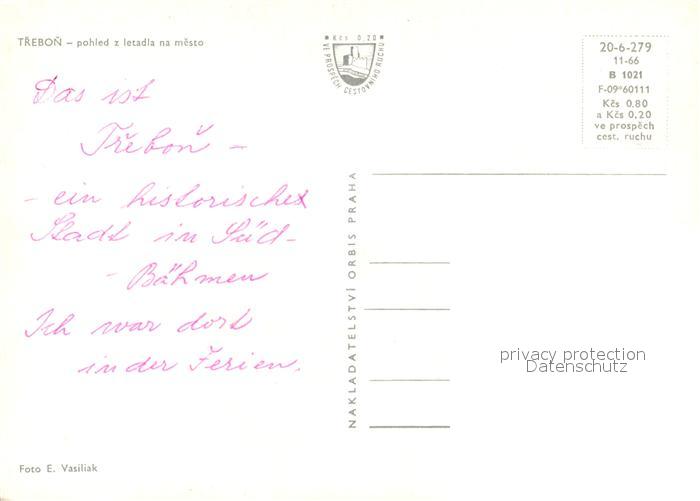 TŘEBOŇ – pohled z letadla na město
• Kčs 0,20 •
VE PROSPĚCH CESTOVNÍHO RUCHU
20-6-279
11-66
B 1021
F-09*60111
Kčs 0.80
a Kčs 0,20
ve prospěch
cest. ruchu
Das ist
Třeboň –
– ein historisches
Stadt in Süd-
- Böhmen
Ich war dort
in der Ferien.
NAKLADATELSTVÍ ORBIS PRAHA
privacy protection
Datenschutz
Foto E. Vasiliak